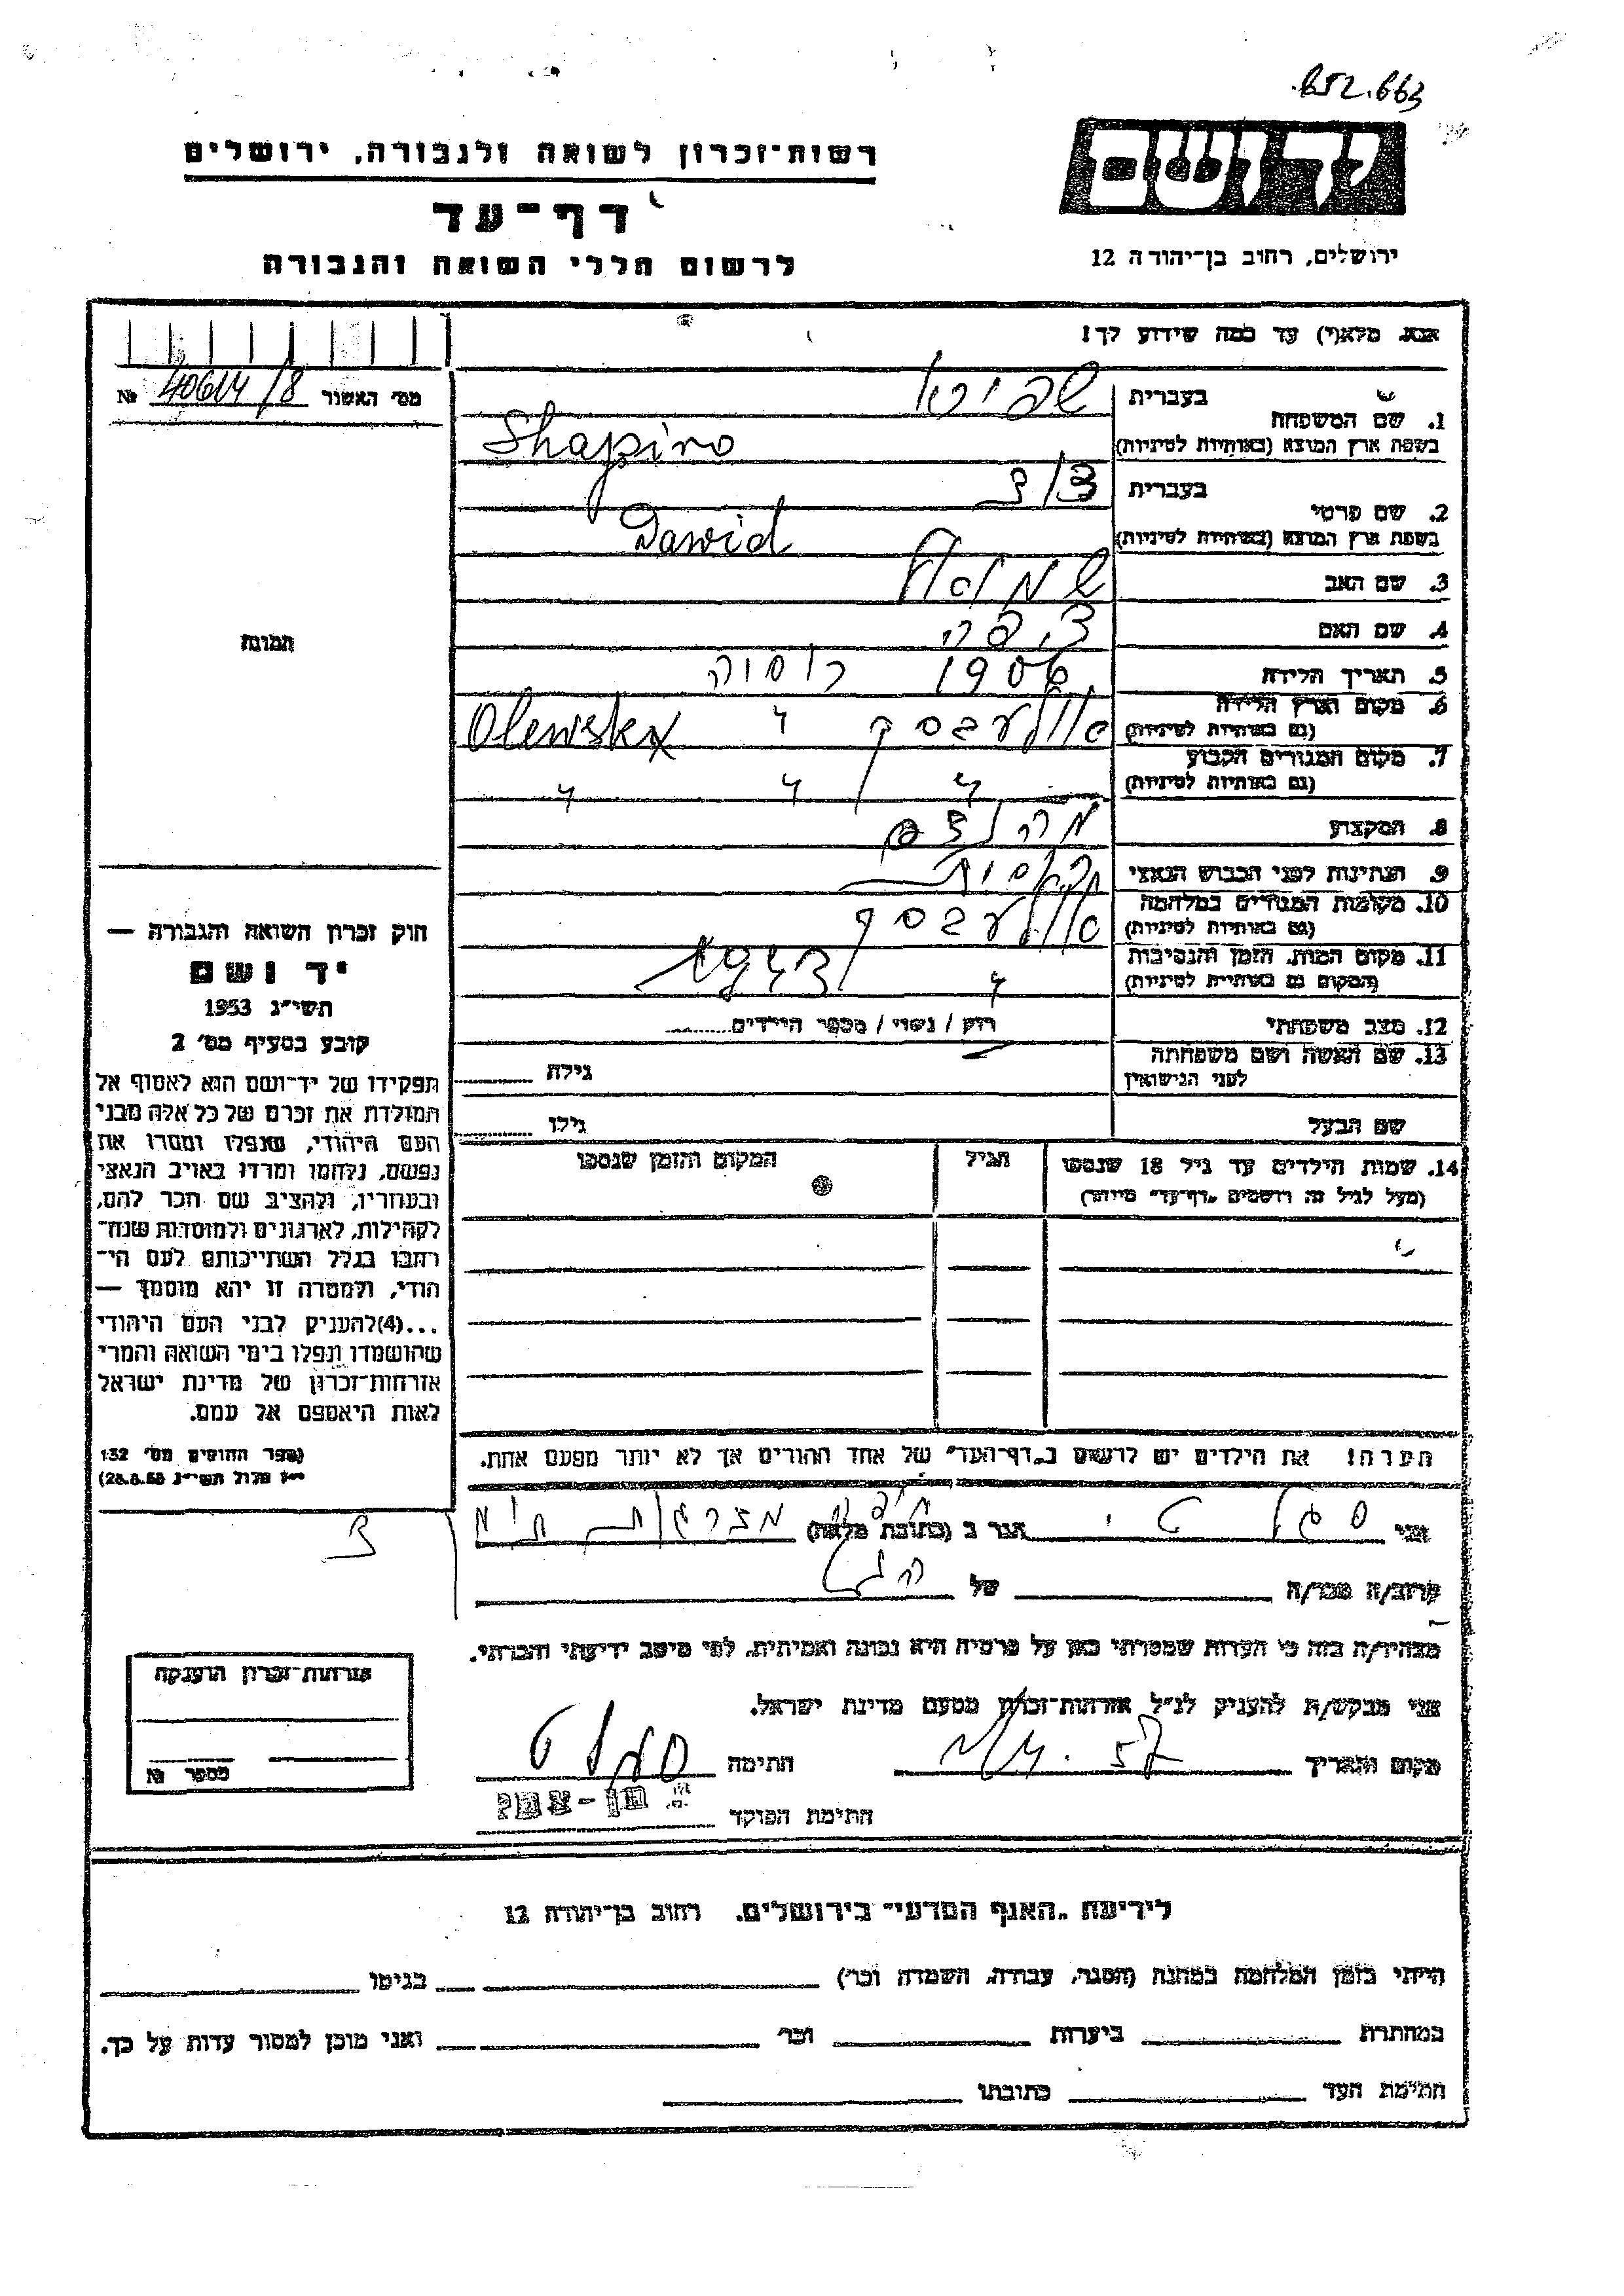 652.663
יד ושם
רשות־זכרון לשואה ולגבורה, ירושלים
דף־עד
לרשום חללי השואה והגבורה
ירושלים, רחוב בן־יהודה 12
אנא, מלא(י) עד כמה שידוע לך!
מס׳ האשור 40614/8 №
בעברית
1. שם המשפחה
בשפת ארץ המוצא (באותיות לטיניות) Shapiro
בעברית דוד
2. שם פרטי
בשפת ארץ המוצא (באותיות לטיניות) Dawid
3. שם האב שמואל
4. שם האם
5. תאריך הלידה 1906 רוסיה
6. מקום וארץ הלידה
(גם באותיות לטיניות) Olewska
7. מקום המגורים הקבוע
(גם באותיות לטיניות)
8. המקצוע
9. הנתינות לפני הכבוש הנאצי
10. מקומות המגורים במלחמה
(גם באותיות לטיניות)
11. מקום המות, הזמן והנסיבות
(המקום גם באותיות לטיניות) 1943
12. מצב משפחתי רוק / נשוי / מספר הילדים
13. שם האשה ושם משפחתה
לפני הנישואין גילה
שם הבעל גילו
14. שמות הילדים עד גיל 18 שנספו הגיל המקום והזמן שנספו
(מעל לגיל זה רושמים „דף־עד״ מיוחד)
הערה! את הילדים יש לרשום ב„דף־העד״ של אחד ההורים אך לא יותר מפעם אחת.
תמונה
חוק זכרון השואה והגבורה —
יד ושם
תשי״ג 1953
קובע בסעיף מס׳ 2
תפקידו של יד־ושם הוא לאסוף אל
המולדת את זכרם של כל אלה מבני
העם היהודי, שנפלו ומסרו את
נפשם, נלחמו ומרדו באויב הנאצי
ובעוזריו, ולהציב שם וזכר להם,
לקהילות, לארגונים ולמוסדות שנח־
רבו בגלל השתייכותם לעם הי־
הודי, ולמטרה זו יהא מוסמך —
...(4)להעניק לבני העם היהודי
שהושמדו ונפלו בימי השואה והמרי
אזרחות־זכרון של מדינת ישראל
לאות היאספם אל עמם.
(ספר החוקים מס׳ 132
אני גר ב (כתובת מלאה)
קרוב/ה מכר/ה של
מצהיר/ה בזה כי העדות שמסרתי כאן על פרטיה היא נכונה ואמיתית, לפי מיטב ידיעתי והכרתי.
אני מבקש/ת להעניק לנ״ל אזרחות־זכרון מטעם מדינת ישראל.
מקום ותאריך 57 חתימה
חתימת הפוקד
אזרחות־זכרון הוענקה
מספר №
לידיעת „האגף המדעי״ בירושלים, רחוב בן־יהודה 12
הייתי בזמן המלחמה במחנה (הסגר, עבודה, השמדה וכו׳) בגיטו
במחתרת ביערות וכו׳ ואני מוכן למסור עדות על כך.
חתימת העד כתובתו